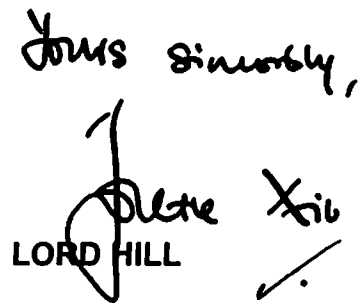 Yours sincerely,
LORD HILL